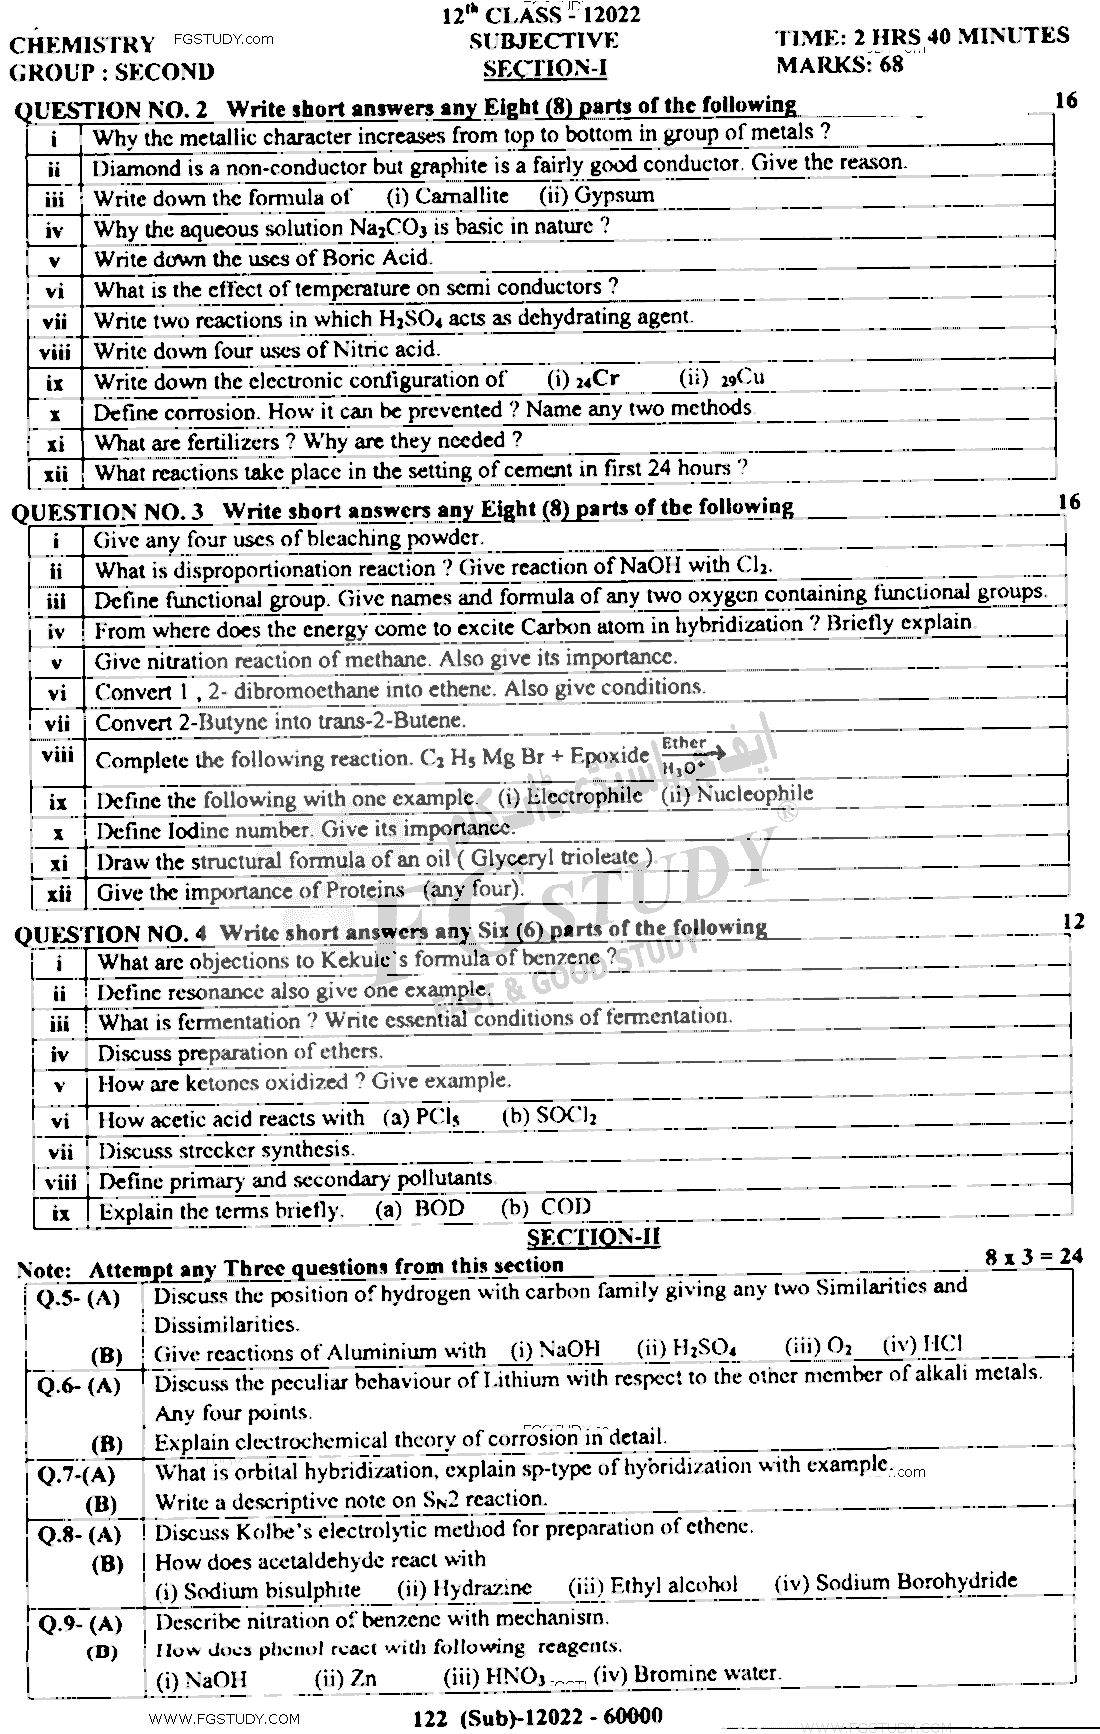 12th CLASS - 12022
CHEMISTRY FGSTUDY.com SUBJECTIVE TIME: 2 HRS 40 MINUTES
GROUP : SECOND SECTION-I MARKS: 68
QUESTION NO. 2 Write short answers any Eight (8) parts of the following 16
i Why the metallic character increases from top to bottom in group of metals ?
ii Diamond is a non-conductor but graphite is a fairly good conductor. Give the reason.
iii Write down the formula of (i) Carnallite (ii) Gypsum
iv Why the aqueous solution Na₂CO₃ is basic in nature ?
v Write down the uses of Boric Acid.
vi What is the effect of temperature on semi conductors ?
vii Write two reactions in which H₂SO₄ acts as dehydrating agent.
viii Write down four uses of Nitric acid.
ix Write down the electronic configuration of (i) ₂₄Cr (ii) ₂₉Cu
x Define corrosion. How it can be prevented ? Name any two methods
xi What are fertilizers ? Why are they needed ?
xii What reactions take place in the setting of cement in first 24 hours ?
QUESTION NO. 3 Write short answers any Eight (8) parts of the following 16
i Give any four uses of bleaching powder.
ii What is disproportionation reaction ? Give reaction of NaOH with Cl₂.
iii Define functional group. Give names and formula of any two oxygen containing functional groups.
iv From where does the energy come to excite Carbon atom in hybridization ? Briefly explain
v Give nitration reaction of methane. Also give its importance.
vi Convert 1 , 2- dibromoethane into ethene. Also give conditions.
vii Convert 2-Butyne into trans-2-Butene.
viii Complete the following reaction. C₂ H₅ Mg Br + Epoxide Ether H₃O⁺ →
ix Define the following with one example. (i) Electrophile (ii) Nucleophile
x Define Iodine number. Give its importance.
xi Draw the structural formula of an oil ( Glyceryl trioleate )
xii Give the importance of Proteins (any four).
FGSTUDY ®
FAST & GOOD STUDY
QUESTION NO. 4 Write short answers any Six (6) parts of the following 12
i What are objections to Kekule's formula of benzene ?
ii Define resonance also give one example.
iii What is fermentation ? Write essential conditions of fermentation.
iv Discuss preparation of ethers.
v How are ketones oxidized ? Give example.
vi How acetic acid reacts with (a) PCl₅ (b) SOCl₂
vii Discuss strecker synthesis.
viii Define primary and secondary pollutants
ix Explain the terms briefly. (a) BOD (b) COD
SECTION-II
Note: Attempt any Three questions from this section 8 x 3 = 24
Q.5- (A) Discuss the position of hydrogen with carbon family giving any two Similarities and
Dissimilarities.
(B) Give reactions of Aluminium with (i) NaOH (ii) H₂SO₄ (iii) O₂ (iv) HCl
Q.6- (A) Discuss the peculiar behaviour of Lithium with respect to the other member of alkali metals.
Any four points.
(B) Explain electrochemical theory of corrosion in detail.
Q.7-(A) What is orbital hybridization, explain sp-type of hybridization with example.
(B) Write a descriptive note on SN2 reaction.
Q.8- (A) Discuss Kolbe's electrolytic method for preparation of ethene.
(B) How does acetaldehyde react with
(i) Sodium bisulphite (ii) Hydrazine (iii) Ethyl alcohol (iv) Sodium Borohydride
Q.9- (A) Describe nitration of benzene with mechanism.
(B) How does phenol react with following reagents.
(i) NaOH (ii) Zn (iii) HNO₃ (iv) Bromine water.
WWW.FGSTUDY.COM 122 (Sub)-12022 - 60000 WWW.FGSTUDY.COM